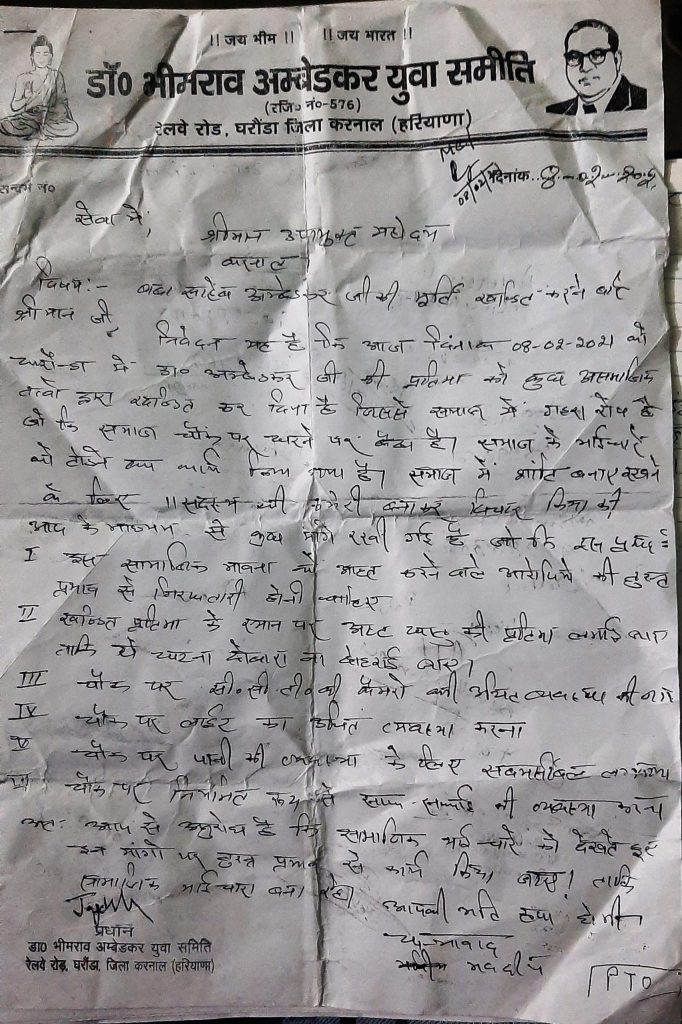 ।। जय भीम ।। ।। जय भारत ।।
डॉ० भीमराव अम्बेडकर युवा समीति
(रजि० नं०-576)
रेलवे रोड, घरौंडा जिला करनाल (हरियाणा)
दिनांक..8-02-202
08/02/
सेवा में,
श्रीमान उपायुक्त महोदय
करनाल
विषय:- बाबा साहेब अम्बेडकर जी की मूर्ति खण्डित करने बारे
श्रीमान जी,
निवेदन यह है कि आज दिनांक 08-02-2021 को
घरौण्डा में डा० अम्बेडकर जी की प्रतिमा को कुछ असमाजिक
तत्वो द्वारा खण्डित कर दिया है जिससे समाज में गहरा रोष है
जो कि समाज चौंक पर धरने पर बैठा है। समाज के भाईचारे
को तोडने का कार्य किया गया है। समाज में शांति बनाए रखने
के लिए 11 सदस्य की कमेटी बनाकर विचार किया
आप के माध्यम से कुछ मांगे रखी गई है जो कि इस प्रकार
I इस सामाजिक भावना को आहत करने वाले आरोपियो की तुरन्त
प्रभाव से गिरफतारी होनी चाहिए
II खण्डित प्रतिमा के स्थान पर अष्ट धातु की प्रतिमा लगाई जाए
ताकि ये घटना दोबारा ना दोहराई जाए।
III चौंक पर सी.सी.टी.वी कैमरो की उचित व्यवस्था की जाए
IV चौंक पर लाईट का उचित व्यवस्था करना
V चौंक पर पानी की व्यवस्था के लिए सबमर्सीबल
VI चौंक पर नियमित रूप से साफ-सफाई की व्यवस्था करना
अत: आप से अनुरोध है कि सामाजिक भाई चारे को देखते हुए
इन मांगो पर तुरन्त प्रभाव से कार्य किया जाए। ताकि
सामाजिक भाईचारा बना रहे। आपकी अति कृपा होगी
धन्यवाद
प्रधान
डा० भीमराव अम्बेडकर युवा समिति
रेलवे रोड, घरौंडा, जिला करनाल (हरियाणा)
PTO